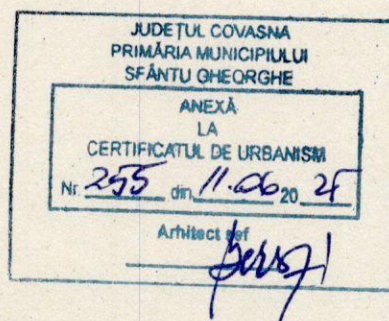 JUDEȚUL COVASNA
PRIMĂRIA MUNICIPIULUI
SFÂNTU GHEORGHE
ANEXĂ
LA
CERTIFICATUL DE URBANISM
Nr. 255 din 11.06 20
Arhitect șef